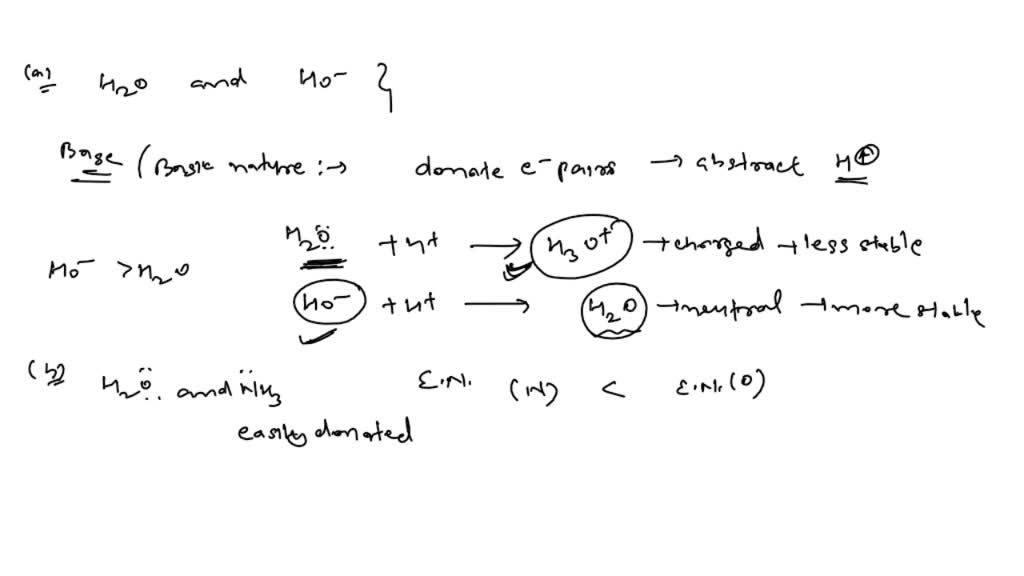 (a) H2O and HO⁻ }
Base (Basic nature :→ donate e⁻pairs → abstract H⊕
H2Ö: + H+ → H3O+ → charged → less stable
HO⁻ > H2O
HO⁻ + H+ → H2O → neutral → more stable
(b) H2Ö: and N̈H3 E.N. (N) < E.N.(O)
easily donated